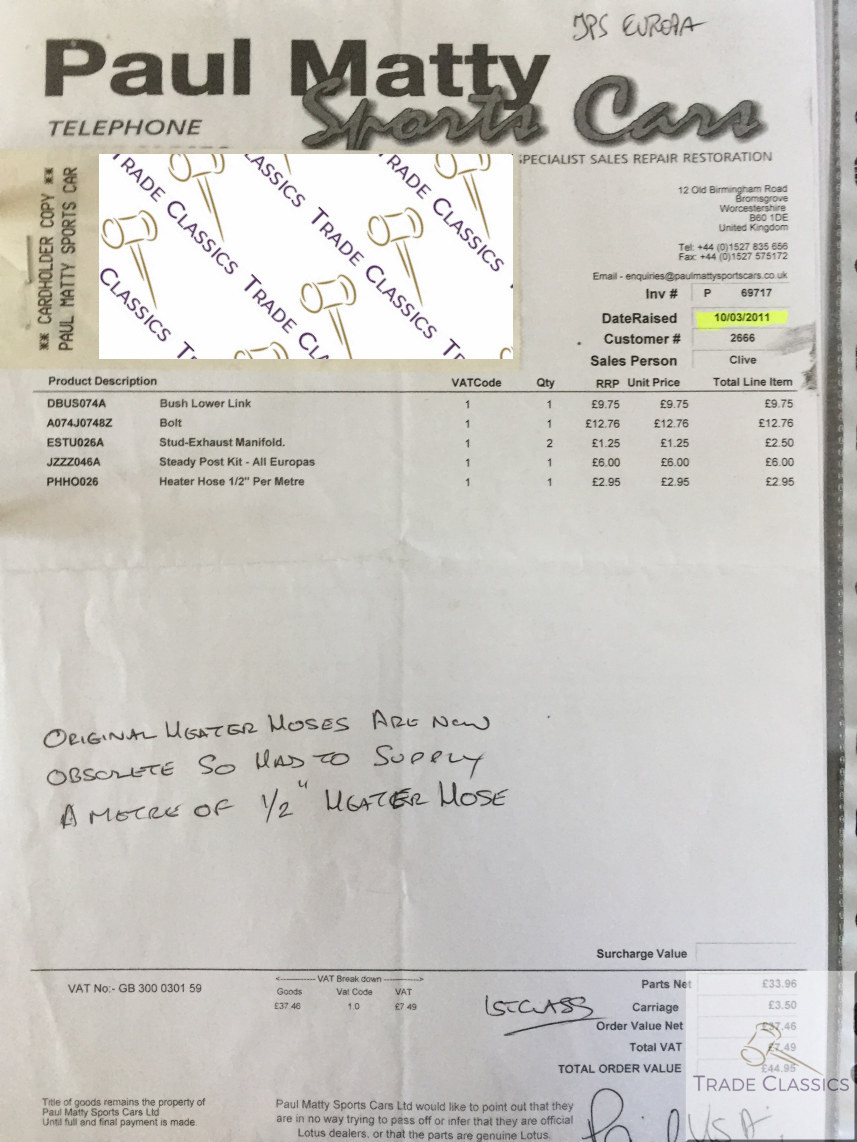 JPS EUROPA
Paul Matty
Sports Cars
TELEPHONE
SPECIALIST SALES REPAIR RESTORATION
** CARDHOLDER COPY **
PAUL MATTY SPORTS CAR
TRADE CLASSICS TRADE CLASSICS
CLASSICS TRADE CLASSICS
TRADE CLASSICS
CLASSICS
12 Old Birmingham Road
Bromsgrove
Worcestershire
B60 1DE
United Kingdom
Tel: +44 (0)1527 835 656
Fax: +44 (0)1527 575172
Email - enquiries@paulmattysportscars.co.uk
Inv # P 69717
DateRaised 10/03/2011
Customer # 2666
Sales Person Clive
Product Description VATCode Qty RRP Unit Price Total Line Item
DBUS074A Bush Lower Link 1 1 £9.75 £9.75 £9.75
A074J0748Z Bolt 1 1 £12.76 £12.76 £12.76
ESTU026A Stud-Exhaust Manifold. 1 2 £1.25 £1.25 £2.50
JZZZ046A Steady Post Kit - All Europas 1 1 £6.00 £6.00 £6.00
PHHO026 Heater Hose 1/2" Per Metre 1 1 £2.95 £2.95 £2.95
ORIGINAL HEATER HOSES ARE NOW
OBSOLETE SO HAD TO SUPPLY
A METRE OF 1/2" HEATER HOSE
Surcharge Value
VAT No:- GB 300 0301 59
<---------- VAT Break down ---------->
Goods Vat Code VAT
£37.46 1.0 £7.49
1ST CLASS
Parts Net £33.96
Carriage £3.50
Order Value Net £37.46
Total VAT £7.49
TOTAL ORDER VALUE £44.95
TRADE CLASSICS
Title of goods remains the property of
Paul Matty Sports Cars Ltd
Until full and final payment is made.
Paul Matty Sports Cars Ltd would like to point out that they
are in no way trying to pass off or infer that they are official
Lotus dealers, or that the parts are genuine Lotus.